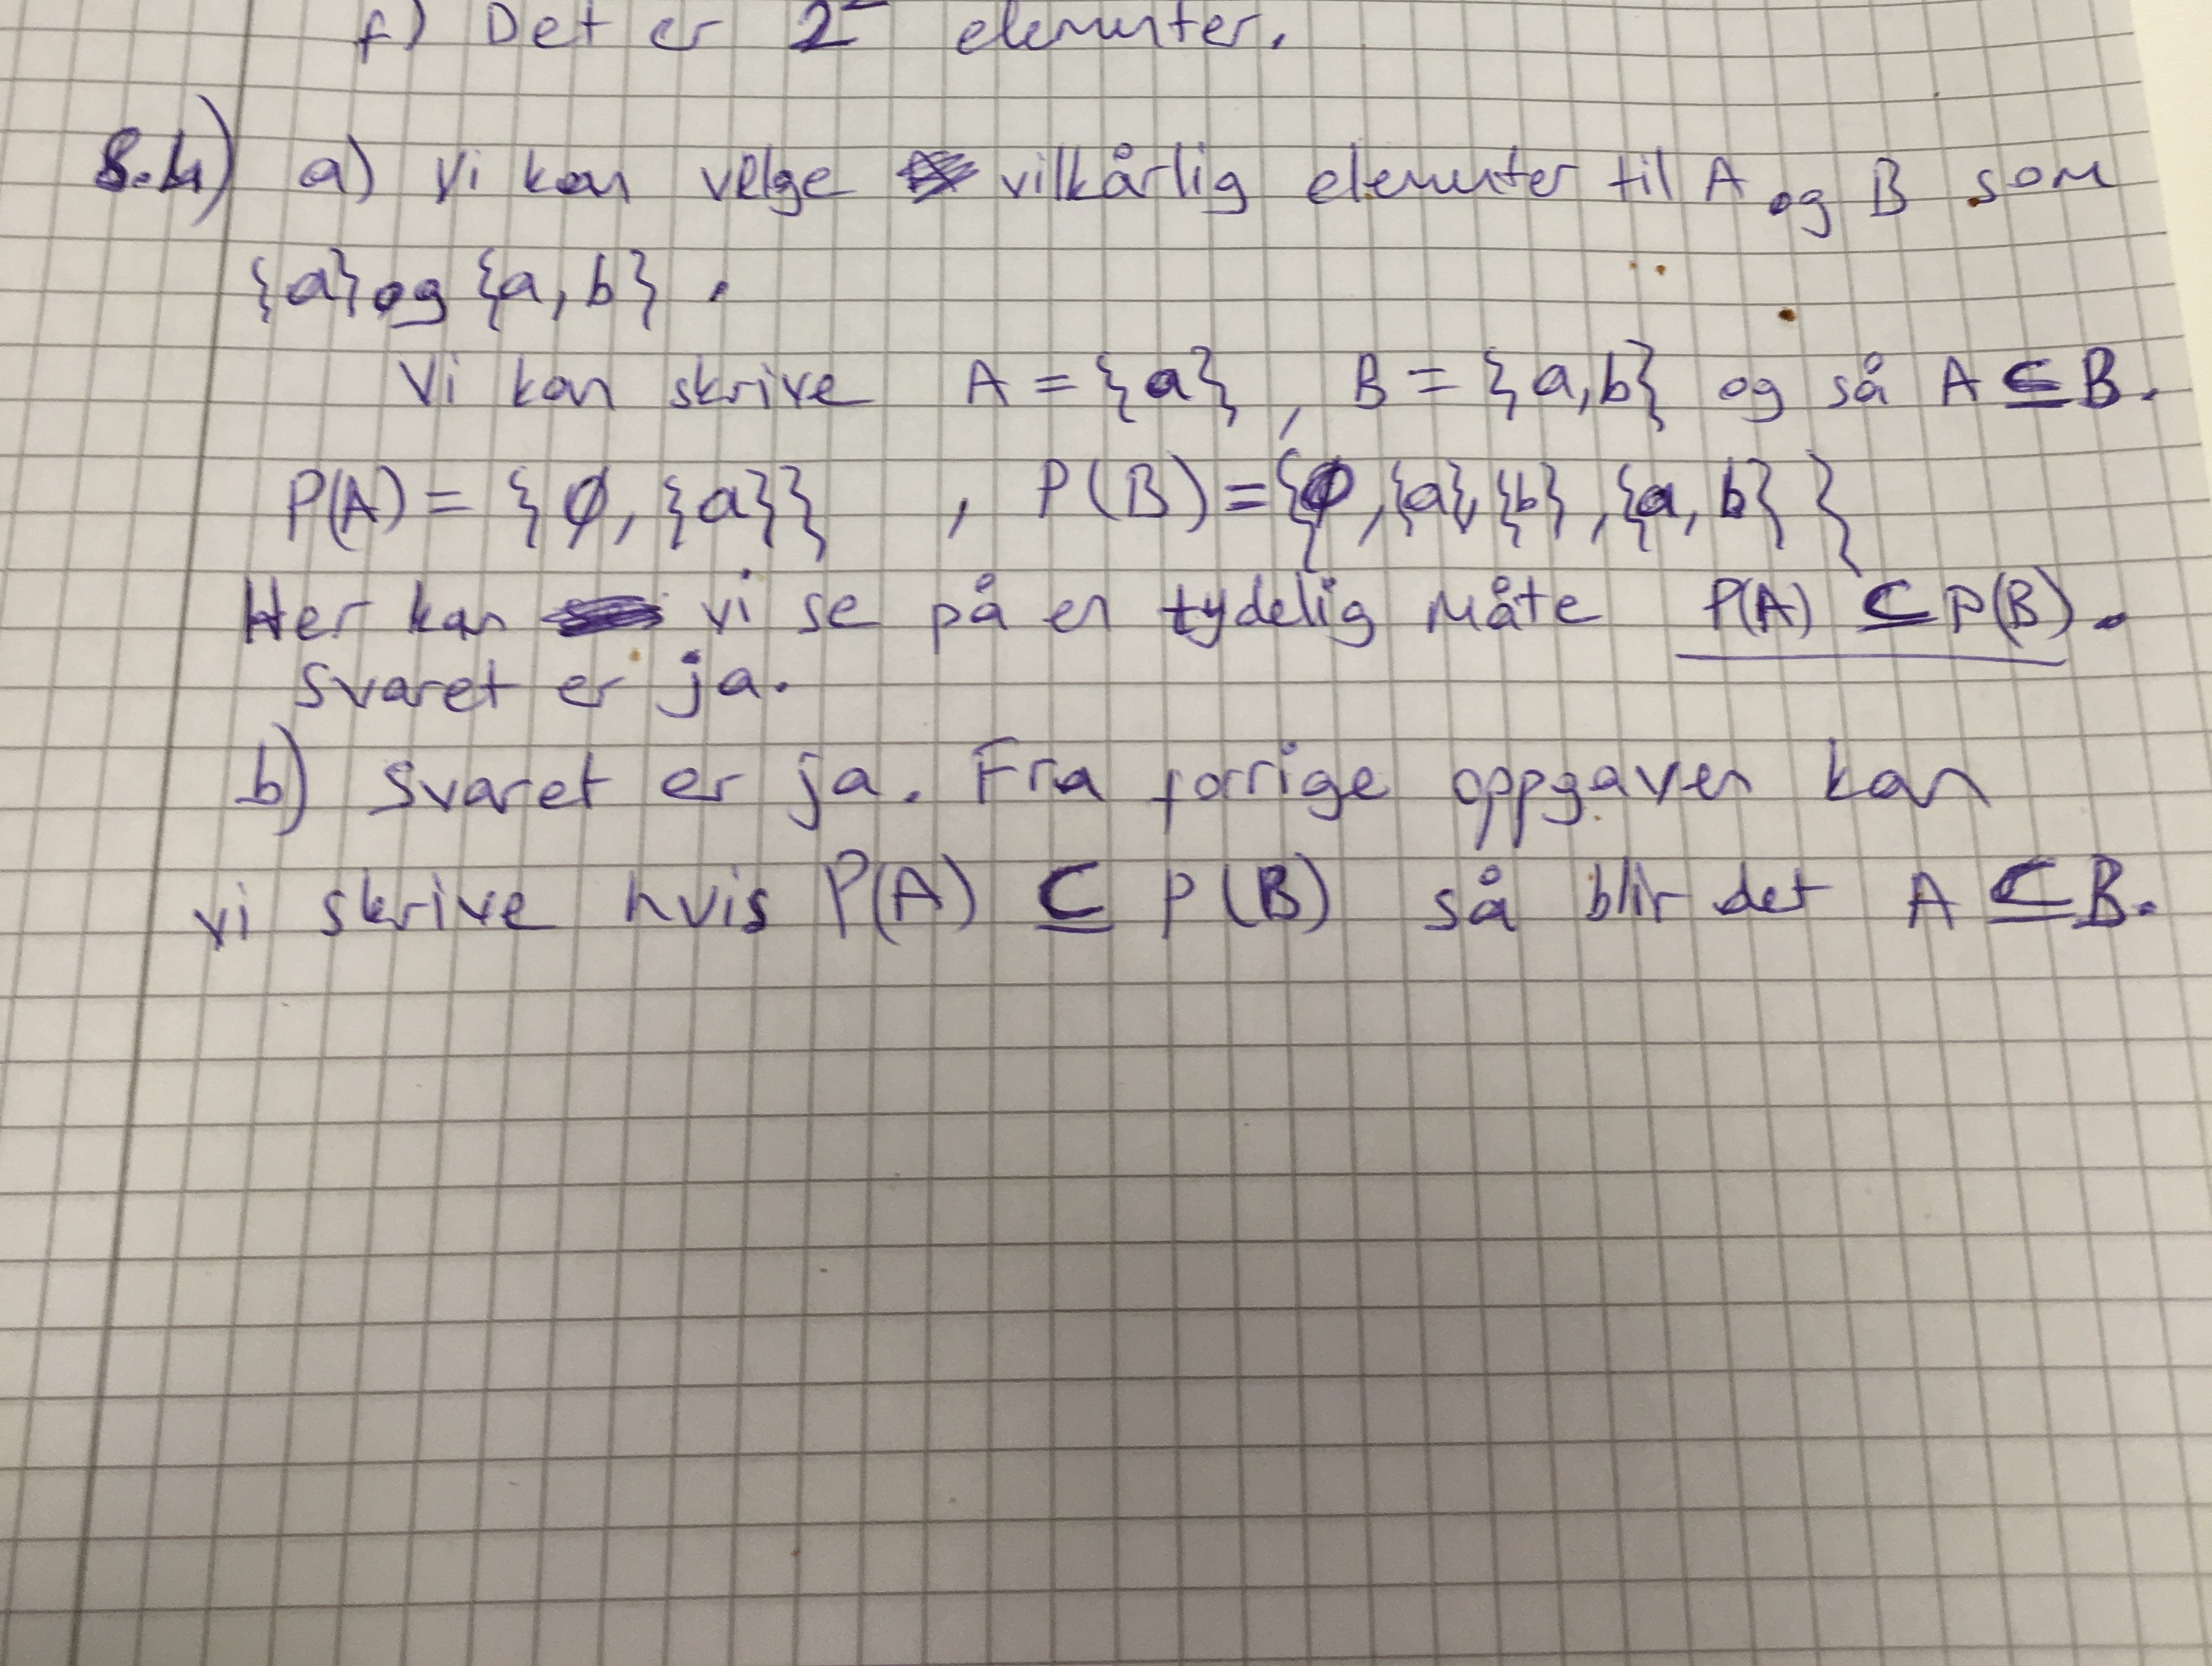 f) Det er 2 elementer.
8.4) a) Vi kan velge vilkårlig elementer til A og B som
{a} og {a, b}.
Vi kan skrive A = {a}, B = {a,b} og så A ⊆ B.
P(A) = {∅, {a}} , P(B) = {∅, {a}, {b}, {a, b} }
Her kan vi se på en tydelig måte P(A) ⊆ P(B).
svaret er ja.
b) svaret er ja. Fra forrige oppgaven kan
vi skrive hvis P(A) ⊆ P(B) så blir det A ⊆ B.